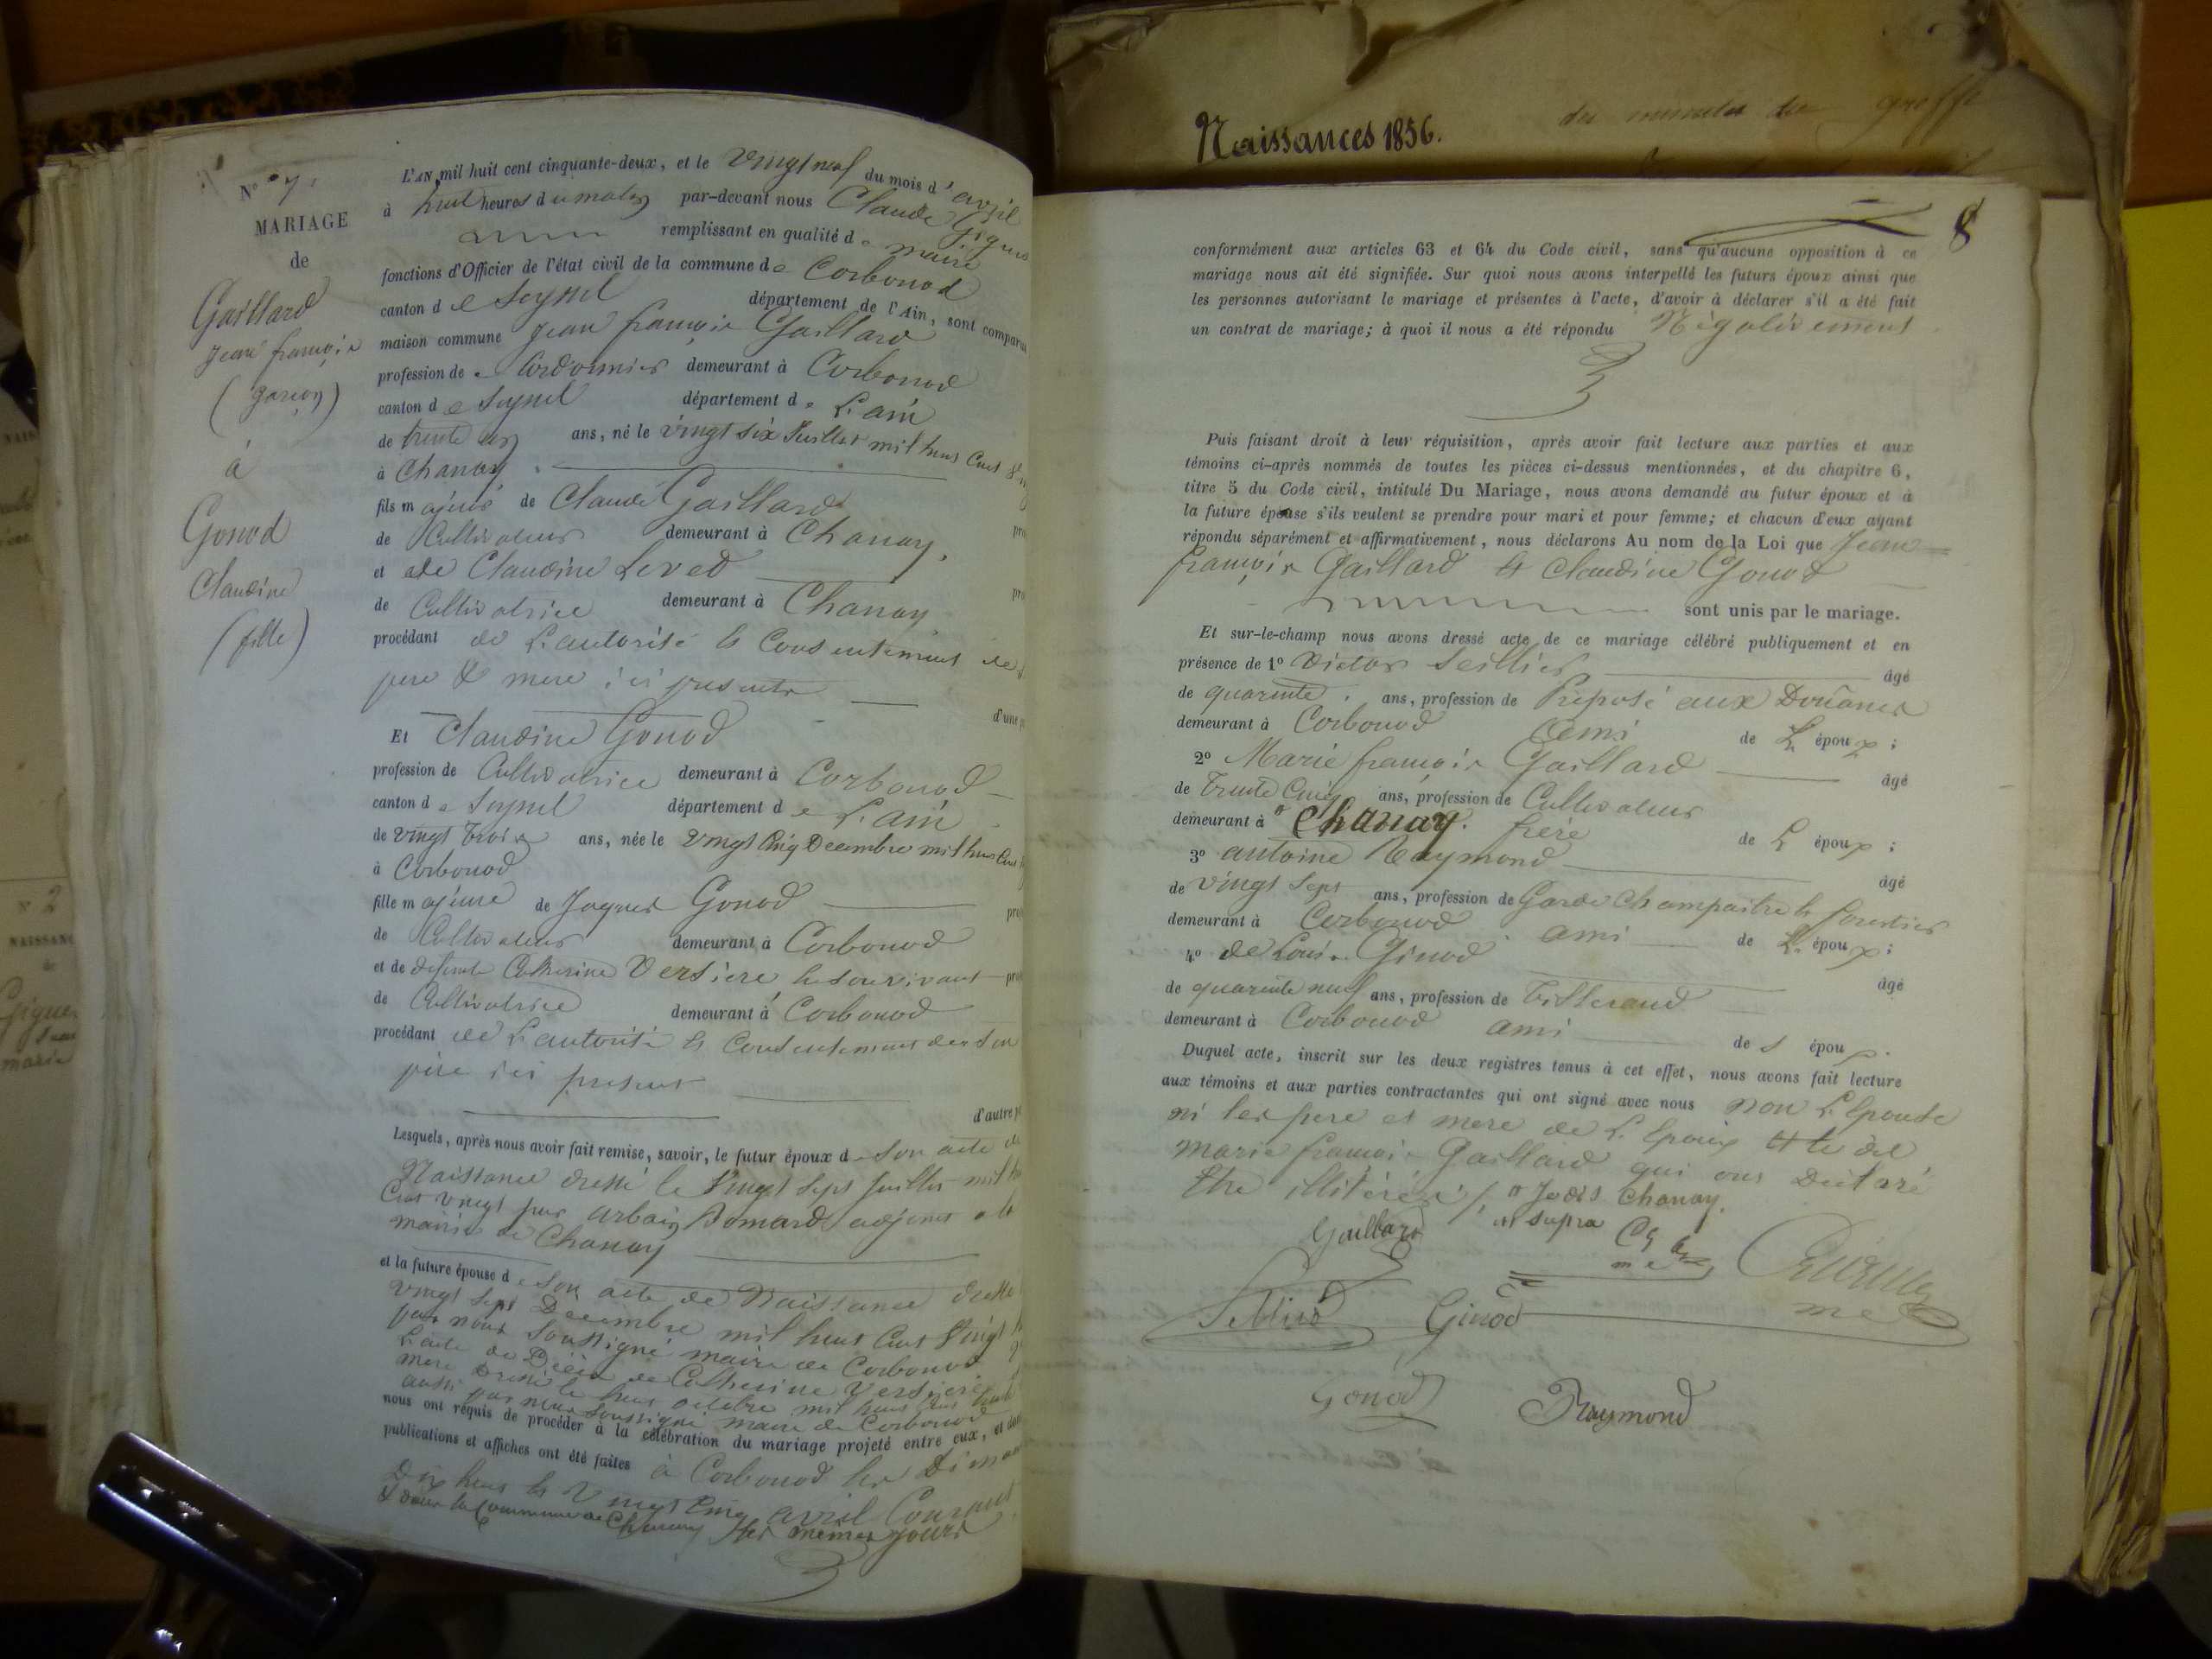 N° 7
MARIAGE
de
Gaillard
Jean françois
(garçon)
à
Gonod
Claudine
(fille)
L'AN mil huit cent cinquante-deux, et le Vingt neuf du mois d'avril
à huit heures du matin par-devant nous Claude
remplissant en qualité de maire
fonctions d'Officier de l'état civil de la commune de Corbonod
canton de Seyssel département de l'Ain, sont comparus
maison commune Jean françois Gaillard
profession de Cordonnier demeurant à Corbonod
canton de Seyssel département de L'ain
de trente un ans, né le vingt six Juillet mil huit Cent
à Chanay
fils majeur de Claude Gaillard
de Cultivateur demeurant à Chanay,
et de Claudine Leved
de Cultivatrice demeurant à Chanay
procédant de L'autorité & Consentement de
pere & mere ici presents
d'une p
Et Claudine Gonod
profession de Cultivatrice demeurant à Corbonod
canton de Seyssel département de L'ain
de vingt trois ans, née le vingt Cinq Decembre mil huit Cent
à Corbonod
fille majeure de Jaques Gonod
de Cultivateur demeurant à Corbonod
et de defunte Catherine Versiere
de Cultivatrice demeurant à Corbonod
procédant de L'autorité & Consentement de son
père ici present
d'autre p
Lesquels, après nous avoir fait remise, savoir, le futur époux de son acte de
Naissance dressé le Vingt Sept Juillet mil h
Cent vingt par adjoint a la
mairie de Chanay
et la future épouse de son acte de Naissance dressé
vingt Sept Decembre mil huit Cent Vingt
par nous Soussigné maire de Corbonod
L'acte de Décès de Catherine Versiere
mere Dressé le huit octobre mil huit Cent
aussi par nous Soussigné maire de Corbonod
nous ont requis de procéder à la célébration du mariage projeté entre eux, et dont
publications et affiches ont été faites à Corbonod les Diman
Dix huit & Vingt Cinq avril Courant
& dans la Commune de Chanay les mêmes jours
Naissances 1856.
8
conformément aux articles 63 et 64 du Code civil, sans qu'aucune opposition à ce
mariage nous ait été signifiée. Sur quoi nous avons interpellé les futurs époux ainsi que
les personnes autorisant le mariage et présentes à l'acte, d'avoir à déclarer s'il a été fait
un contrat de mariage; à quoi il nous a été répondu Négativement
Puis faisant droit à leur réquisition, après avoir fait lecture aux parties et aux
témoins ci-après nommés de toutes les pièces ci-dessus mentionnées, et du chapitre 6,
titre 5 du Code civil, intitulé Du Mariage, nous avons demandé au futur époux et à
la future épouse s'ils veulent se prendre pour mari et pour femme; et chacun d'eux ayant
répondu séparément et affirmativement, nous déclarons Au nom de la Loi que Jean
françois Gaillard & Claudine Gonod
sont unis par le mariage.
Et sur-le-champ nous avons dressé acte de ce mariage célébré publiquement et en
présence de 1° Victor Seillier âgé
de quarente ans, profession de Préposé aux Douanes
demeurant à Corbonod ami de L'époux;
2° Marie françois Gaillard âgé
de Trente Cinq ans, profession de Cultivateur
demeurant à Chanay. frère de L'époux;
3° antoine Raymond âgé
de vingt Sept ans, profession de Garde Champaitre & forestier
demeurant à Corbonod ami de L'époux;
4° de Louis Ginod âgé
de quarente neuf ans, profession de Tisserand
demeurant à Corbonod ami de s époux.
Duquel acte, inscrit sur les deux registres tenus à cet effet, nous avons fait lecture
aux témoins et aux parties contractantes qui ont signé avec nous non L'Epouse
ni les pere et mere de L'Epoux
marie françois Gaillard qui ont Déclaré
être illitérés Chanay.
ut supra
Gaillard
Ginod
Gonod
Raymond